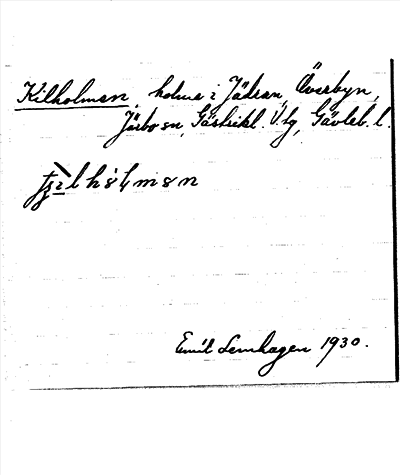 Kilholmen, holme i Jädran, Överbyn,
Järbo sn, Gästrikl. V. lg, Gävleb. l.
Emil Lemhagen 1930.